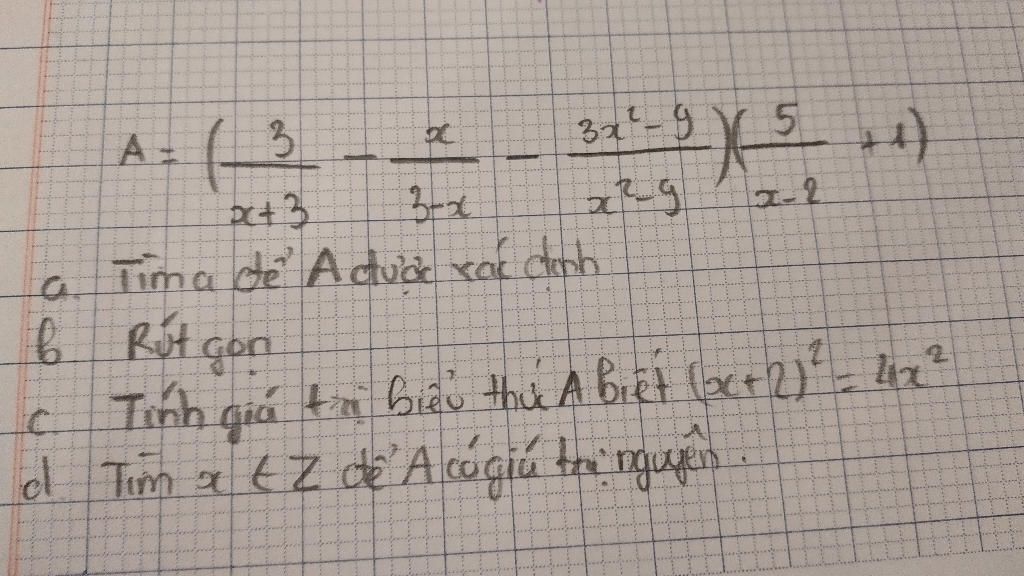 A = (3/(x+3) - x/(3-x) - (3x² - 9)/(x² - 9))(5/(x-2) + 1)
a. Tìm a để A được xác định
b Rút gọn
c Tính giá trị biểu thức A biết (x+2)² = 4x²
d Tìm x ∈ Z để A có giá trị nguyên.